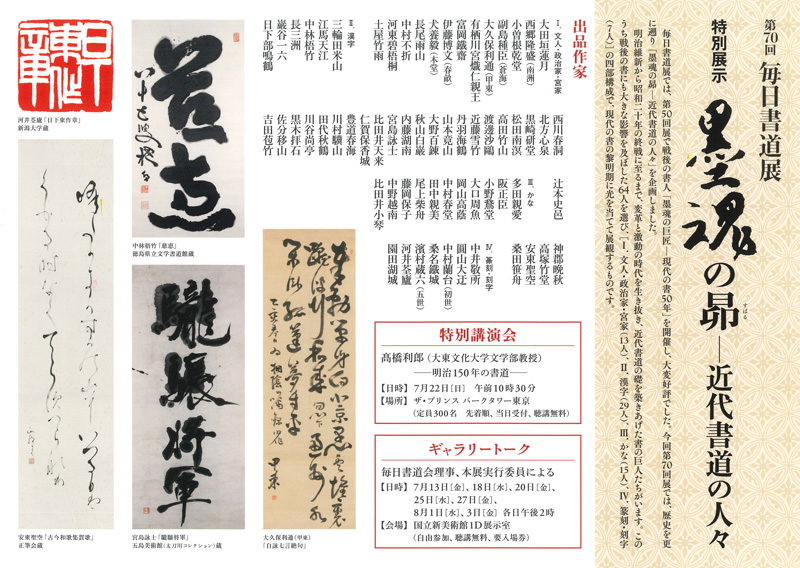 第70回 毎日書道展
特別展示 墨魂の昴―近代書道の人々
すばる
毎日書道展では、第50回展で戦後の書人「墨魂の巨匠―現代の書50年」を開催し、大変好評でした。今回第70回展では、歴史を更
に遡り「墨魂の昴―近代書道の人々」を企画しました。
明治維新から昭和二十年の終戦に至るまで、変革と激動の時代を生き抜き、近代書道の礎を築きあげた書の巨人たちがいます。この
うち戦後の書にも大きな影響を及ぼした64人を選び、「Ⅰ. 文人・政治家・宮家(13人)、Ⅱ. 漢字(29人)、Ⅲ. かな(15人)、Ⅳ. 篆刻・刻字
(7人)」の四部構成で、現代の書の黎明期に光を当てて展観するものです。
出品作家
Ⅰ. 文人・政治家・宮家
大田垣蓮月
西郷隆盛(南洲)
小曽根乾堂
副島種臣(蒼海)
大久保利通(甲東)
有栖川宮熾仁親王
富岡鐵齋
伊藤博文(春畝)
犬養毅(木堂)
長尾雨山
中村不折
河東碧梧桐
土屋竹雨
Ⅱ. 漢字
三輪田米山
江馬天江
中林梧竹
長三洲
巌谷一六
日下部鳴鶴
西川春洞
北方心泉
黒崎研堂
松田南溟
高田竹山
渡邊沙鷗
近藤雪竹
丹羽海鶴
山本竟山
大野百錬
秋山白巌
内藤湖南
宮島詠士
比田井天来
仁賀保香城
豊道春海
川村驥山
田代秋鶴
川谷尚亭
黒木拝石
佐分移山
吉田苞竹
辻本史邑
Ⅲ. かな
多田親愛
阪正臣
小野鵞堂
大口周魚
岡山高蔭
中村春堂
田中親美
尾上柴舟
藤岡保子
中野越南
比田井小琴
神郡晩秋
高塚竹堂
安東聖空
桑田笹舟
Ⅳ. 篆刻・刻字
中井敬所
圓山大迂
中村蘭台(初世)
桑名鐵城
濱村蔵六(五世)
河井荃廬
園田湖城
特別講演会
髙橋利郎(大東文化大学文学部教授)
――明治150年の書道――
【日時】7月22日[日] 午前10時30分
【場所】ザ・プリンス パークタワー東京
(定員300名 先着順、当日受付、聴講無料)
ギャラリートーク
毎日書道会理事、本展実行委員による
【日時】7月13日[金]、18日[水]、20日[金]、
25日[水]、27日[金]、
8月1日[水]、3日[金] 各日午後2時
【会場】国立新美術館1D展示室
(自由参加、聴講無料、要入場券)
河井荃廬「日下東作章」
新潟大学蔵
慈恵
中林梧竹「慈恵」
徳島県立文学書道館蔵
安東聖空「古今和歌集賀歌」
正筆会蔵
龍驤将軍
宮島詠士「龍驤将軍」
五島美術館(太刀川コレクション)蔵
大久保利通(甲東)
「自詠七言絶句」